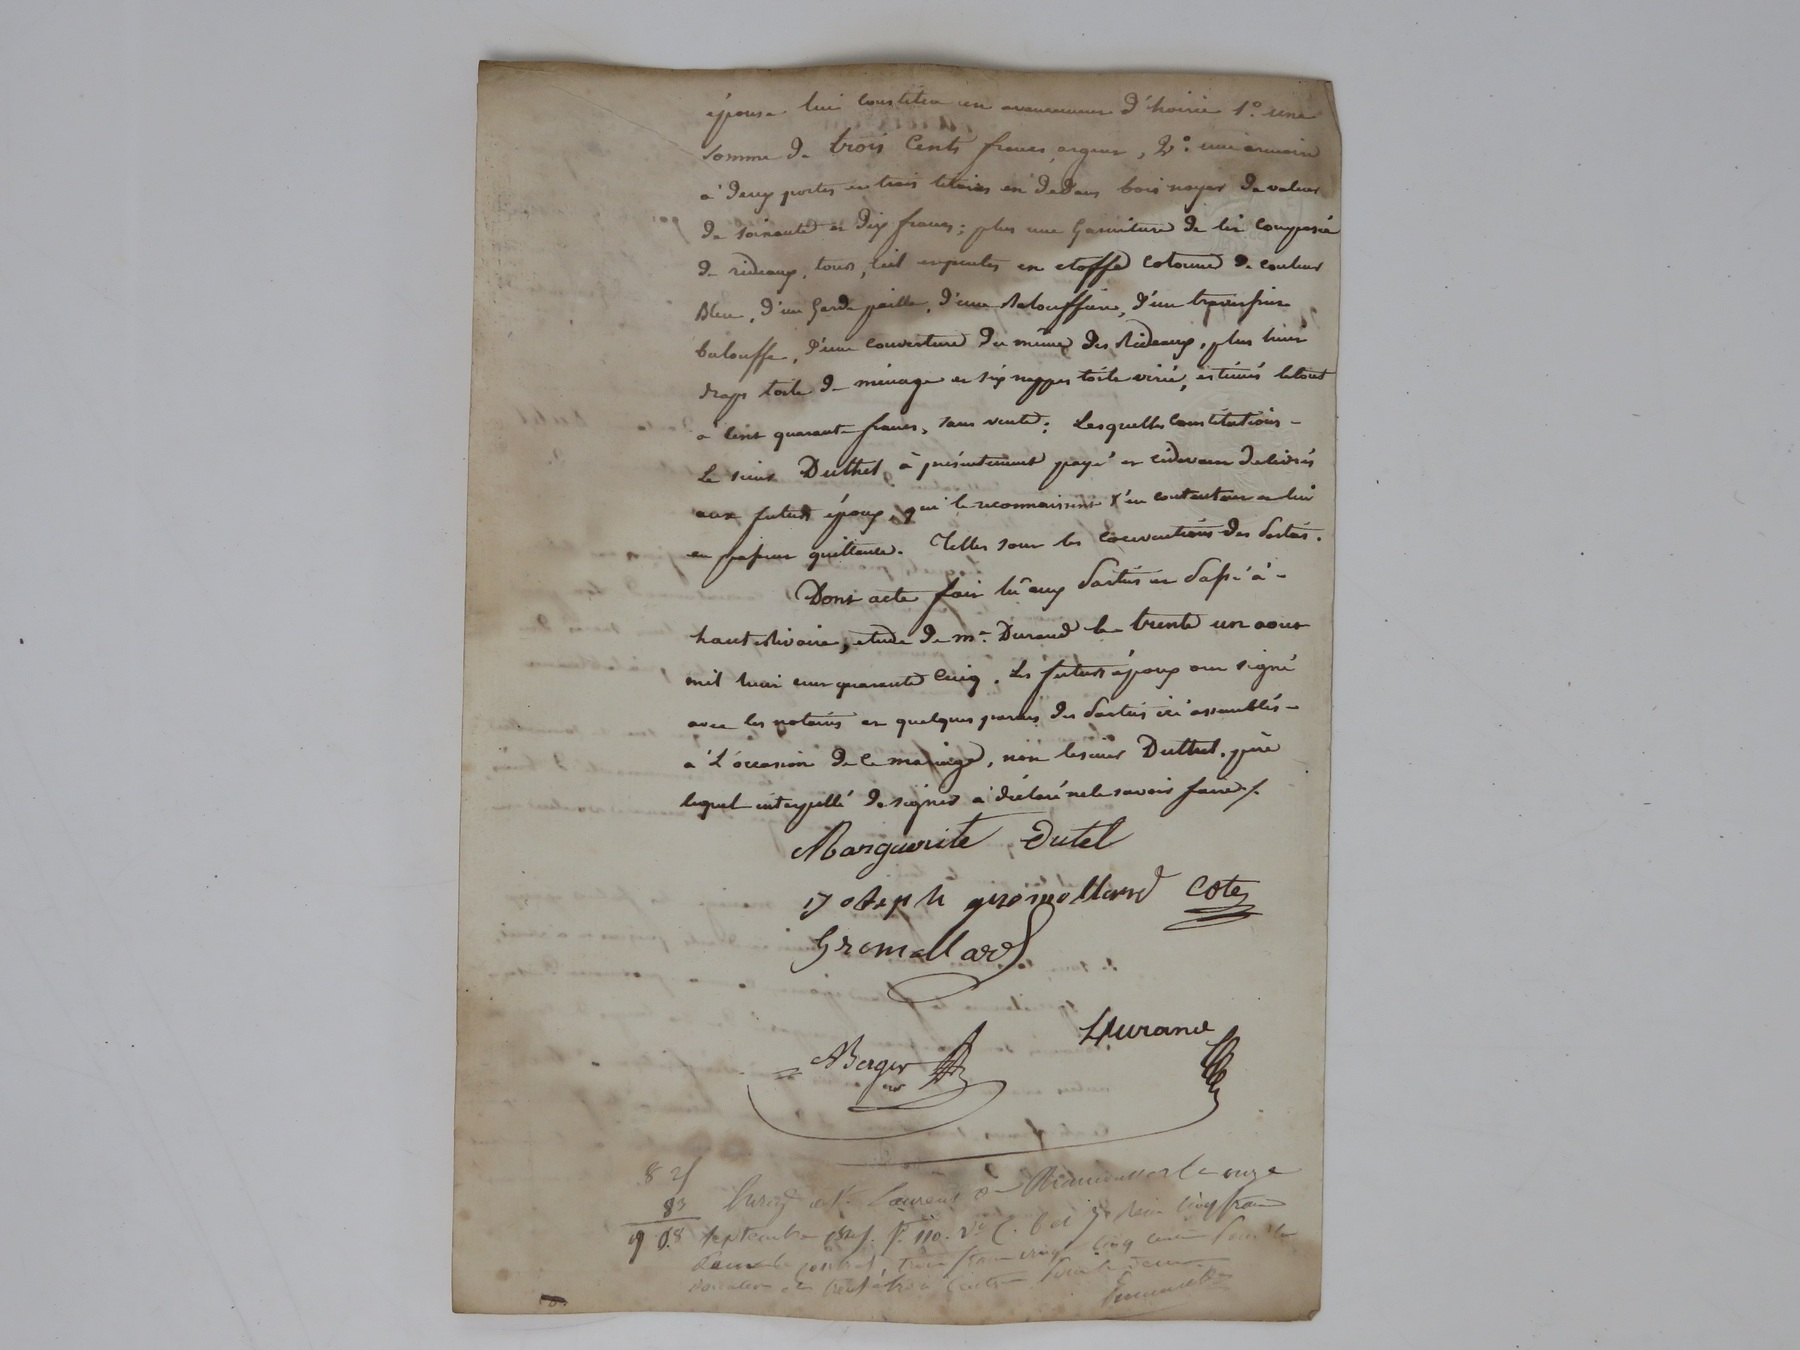 épouse lui constitue en avancement d'hoirie 1°. une
somme de trois cents francs argent, 2°. une armoire
à deux portes et trois en dedans bois noyer de valeur
de soixante et dix francs; plus une garniture de lit composée
de rideaux, tour, en étoffe cotonne de couleur
bleu, d'un garde paille, d'une balouffière, d'un traversin
balouffe, d'une couverture des rideaux, plus huit
draps toile de ménage et six nappes toile, estimés le tout
à cent quarante francs, sans vente; Lesquelles constitutions
le sieur Duthel à présentement payé et delivrés
aux futurs époux, qui le reconnaissent s'en contentent et lui
en passent quittance. Telles sont les conventions des parties.
Dont acte fait lu aux parties et passé à
hauterivoire, etude de me. Durand le trente un aout
mil huit cent quarante cinq. Les futurs époux ont signé
avec les notaires et quelques parens des parties ici assemblés
à l'occasion de ce mariage, non le sieur Duthel père
lequel interpellé de signer à déclaré ne le savoir faire /.
Marguerite Dutel
joseph gromollard Cote
Gromollard
Durand
Berger
not
83
St Laurent de le onze
septembre f°. 110. V° C. cinq francs